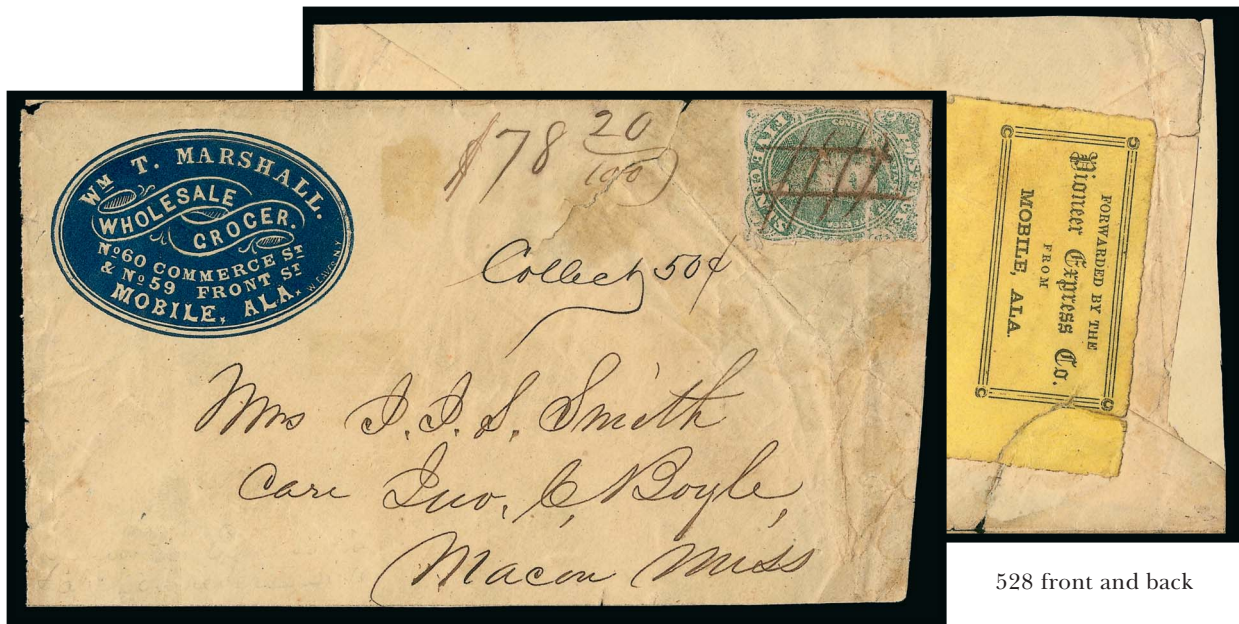 Wᴹ T. MARSHALL.
WHOLESALE
GROCER.
Nº60 COMMERCE Sᵀ
& Nº59 FRONT Sᵀ
MOBILE, ALA.
$78 20/100
Collect 50¢
FIVE
CENTS
Mrs J. J. S. Smith
Care Jno. C, Boyle,
Macon Miss
FORWARDED BY THE
Pioneer Express Co.
FROM
MOBILE, ALA.
528 front and back